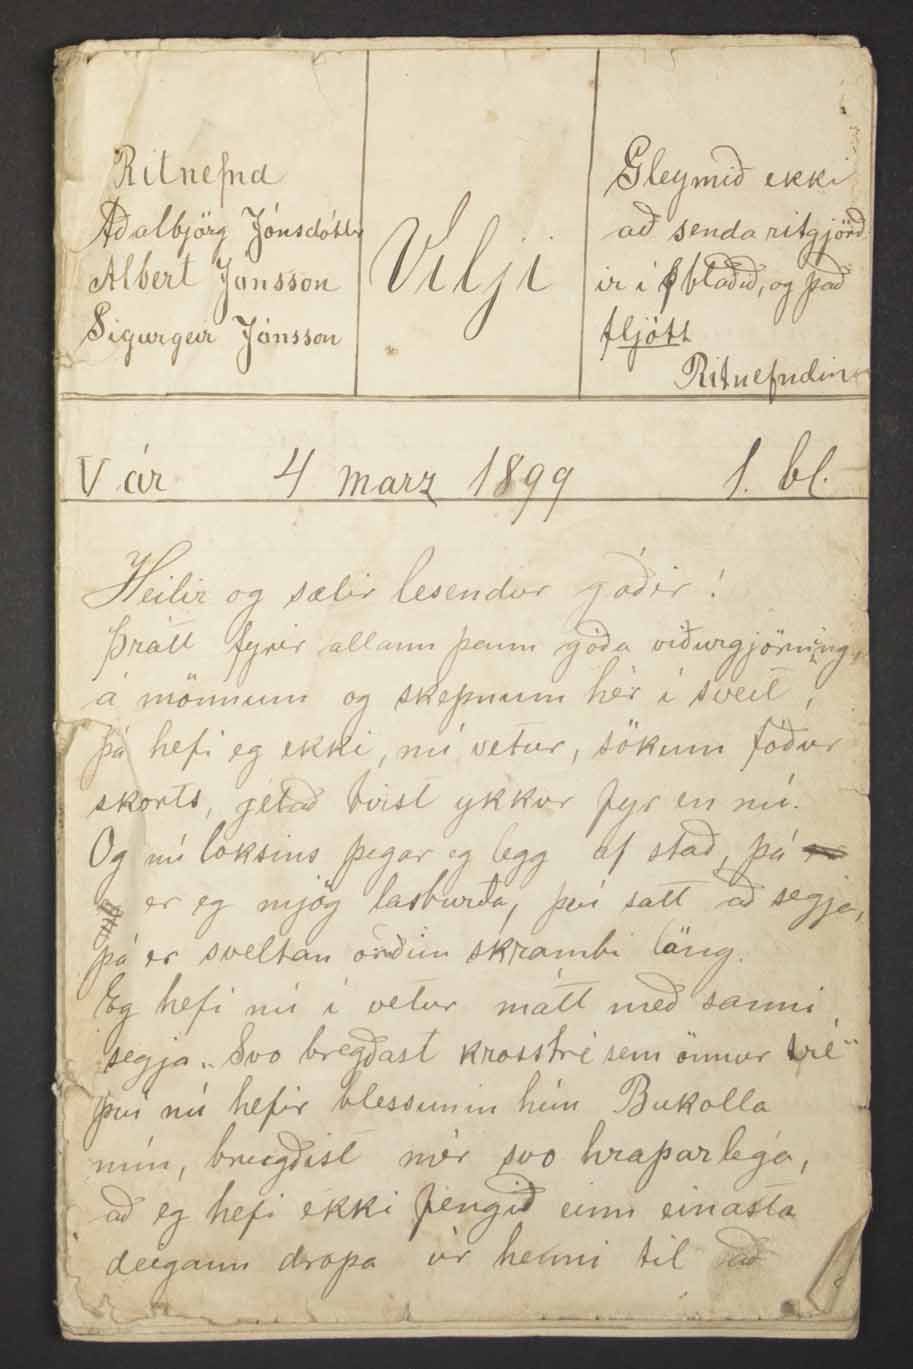 Ritnefnd
Aðalbjörg Jónsdóttir
Albert Jónsson
Sigurgeir Jónsson
Vilji
Gleymið ekki
að senda ritgjörð
ir í blaðið, og það
fljótt
Ritnefndin
V ár 4 marz 1899 1. bl.
Heilir og sælir lesendur góðir!
Þrátt fyrir allann þann góða viðurgjörning,
á mönnum og skepnum hér í sveit,
þá hefi eg ekki, nú vetur, sökum fóður
skorts, getað birst ykkur fyr en nú.
Og nú loksins þegar eg legg af stað, þá
er eg mjög lasburða, því satt að segja,
þá er sveltan orðin skrambi láng.
Eg hefi nú í vetur mátt með sanni
segja „Svo bregðast krosstré sem önnur tré"
því nú hefir blessunin hún Bukolla
mín, brugðist mér svo hraparlega,
að eg hefi ekki fengið einn einasta
deigann dropa úr henni til að